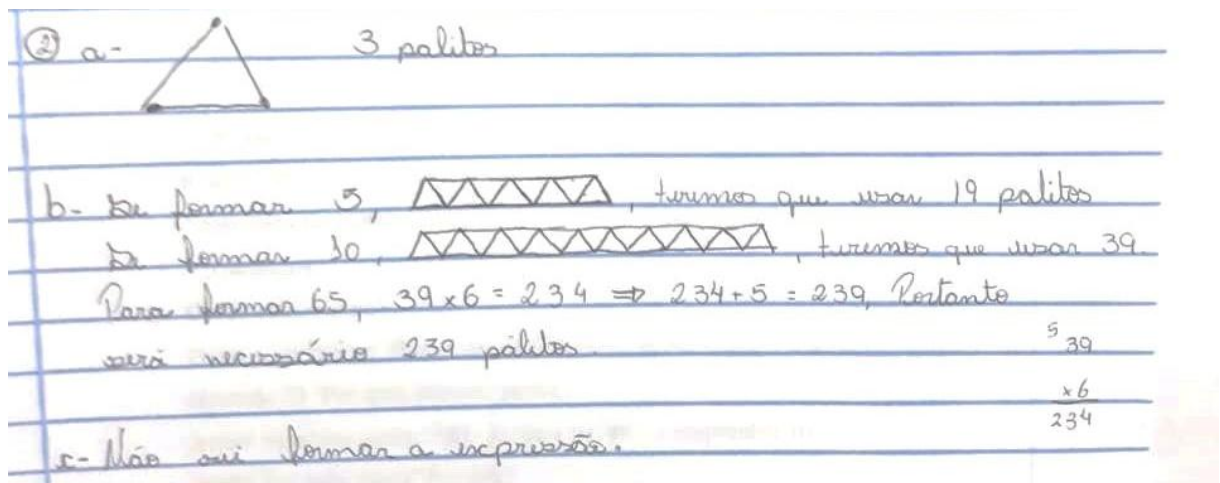 ② a- 3 palitos
b- Se formar 5, , teremos que usar 19 palitos
Se formar 10, , teremos que usar 39.
Para formar 65, 39 x 6 = 234 ⇒ 234 + 5 = 239, Portanto
será necessário 239 pálitos.
5 39
x6
234
c- Não sei formar a expressão.